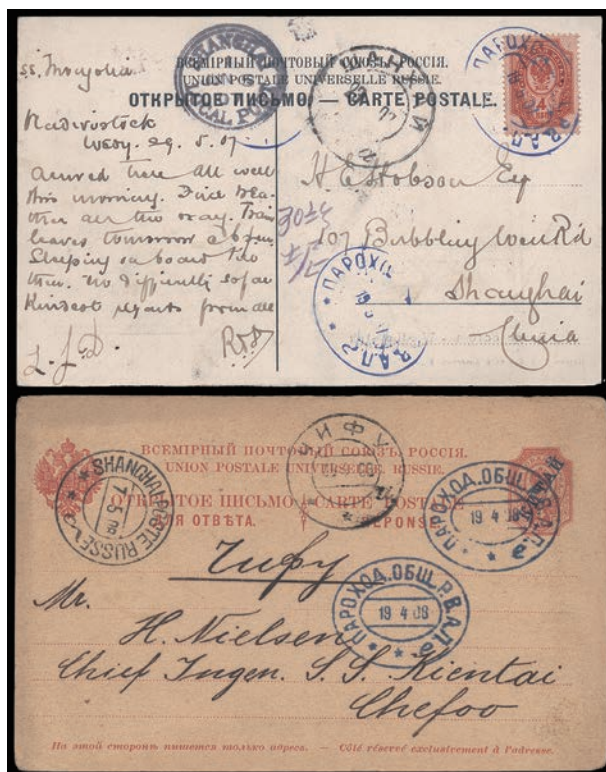 SHANGHAI
LOCAL POST
ВСЕМІРНЫЙ ПОЧТОВЫЙ СОЮЗЪ. РОССІЯ.
UNION POSTALE UNIVERSELLE RUSSIE.
ОТКРЫТОЕ ПИСЬМО. — CARTE POSTALE.
ШАНХАЙ
ПАРОХ
4
В.А.Л.
ss. Mongolia
Vladivostock
Wedy. 29. 5. 07
Arrived here all well
this morning. Fine wea-
ther all the way. Train
leaves tomorrow
Sleeping on board
no difficulty so far
Kindest regards from all
H E Hobson Esq
107 Bubbling Well Rd
Shanghai
China
ПАРОХ
В.А.Л. 2
ВСЕМІРНЫЙ ПОЧТОВЫЙ СОЮЗЪ. РОССІЯ.
UNION POSTALE UNIVERSELLE. RUSSIE.
ОТКРЫТОЕ ПИСЬМО — CARTE POSTALE
ДЛЯ ОТВѢТА. RÉPONSE.
SHANGHAI-POSTE RUSSE
7 5
ЧИФУ
КИТАЙ
ПАРОХОД.ОБЩ.Р.В.А.Л.
19 4 08
ПАРОХОД.ОБЩ.Р.В.А.Л.
19 4 08
Чифу
Mr.
H. Nielsen
Chief Ingen. S. S. Kientai
Chefoo
На этой сторонѣ пишется только адресъ. — Côté réservé exclusivement à l'adresse.